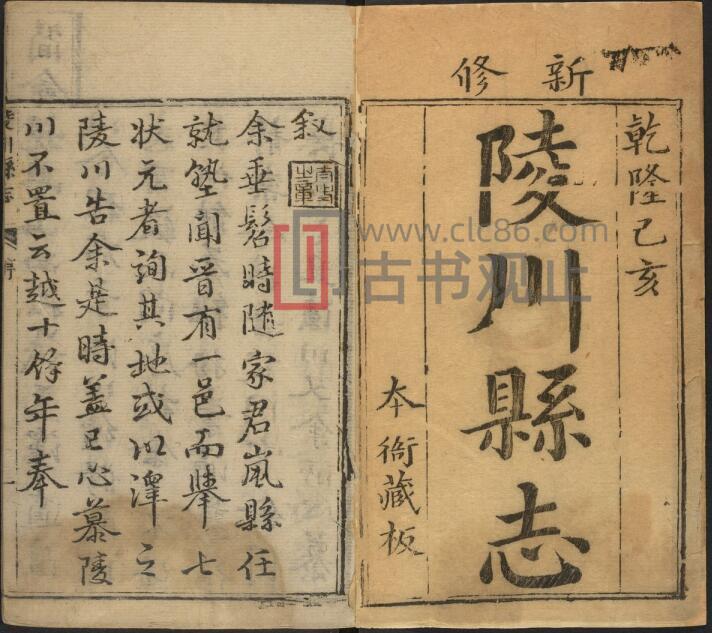 新修
乾隆己亥
陵川縣志
本衙藏板
叙
余垂髫時随家君嵐縣任
就塾聞晋有一邑而舉七
状元者詢其地或以澤之
陵川告余是時盖已心慕陵
川不置云越十餘年奉
陵川縣志
序
www.clc86.com
古书观止